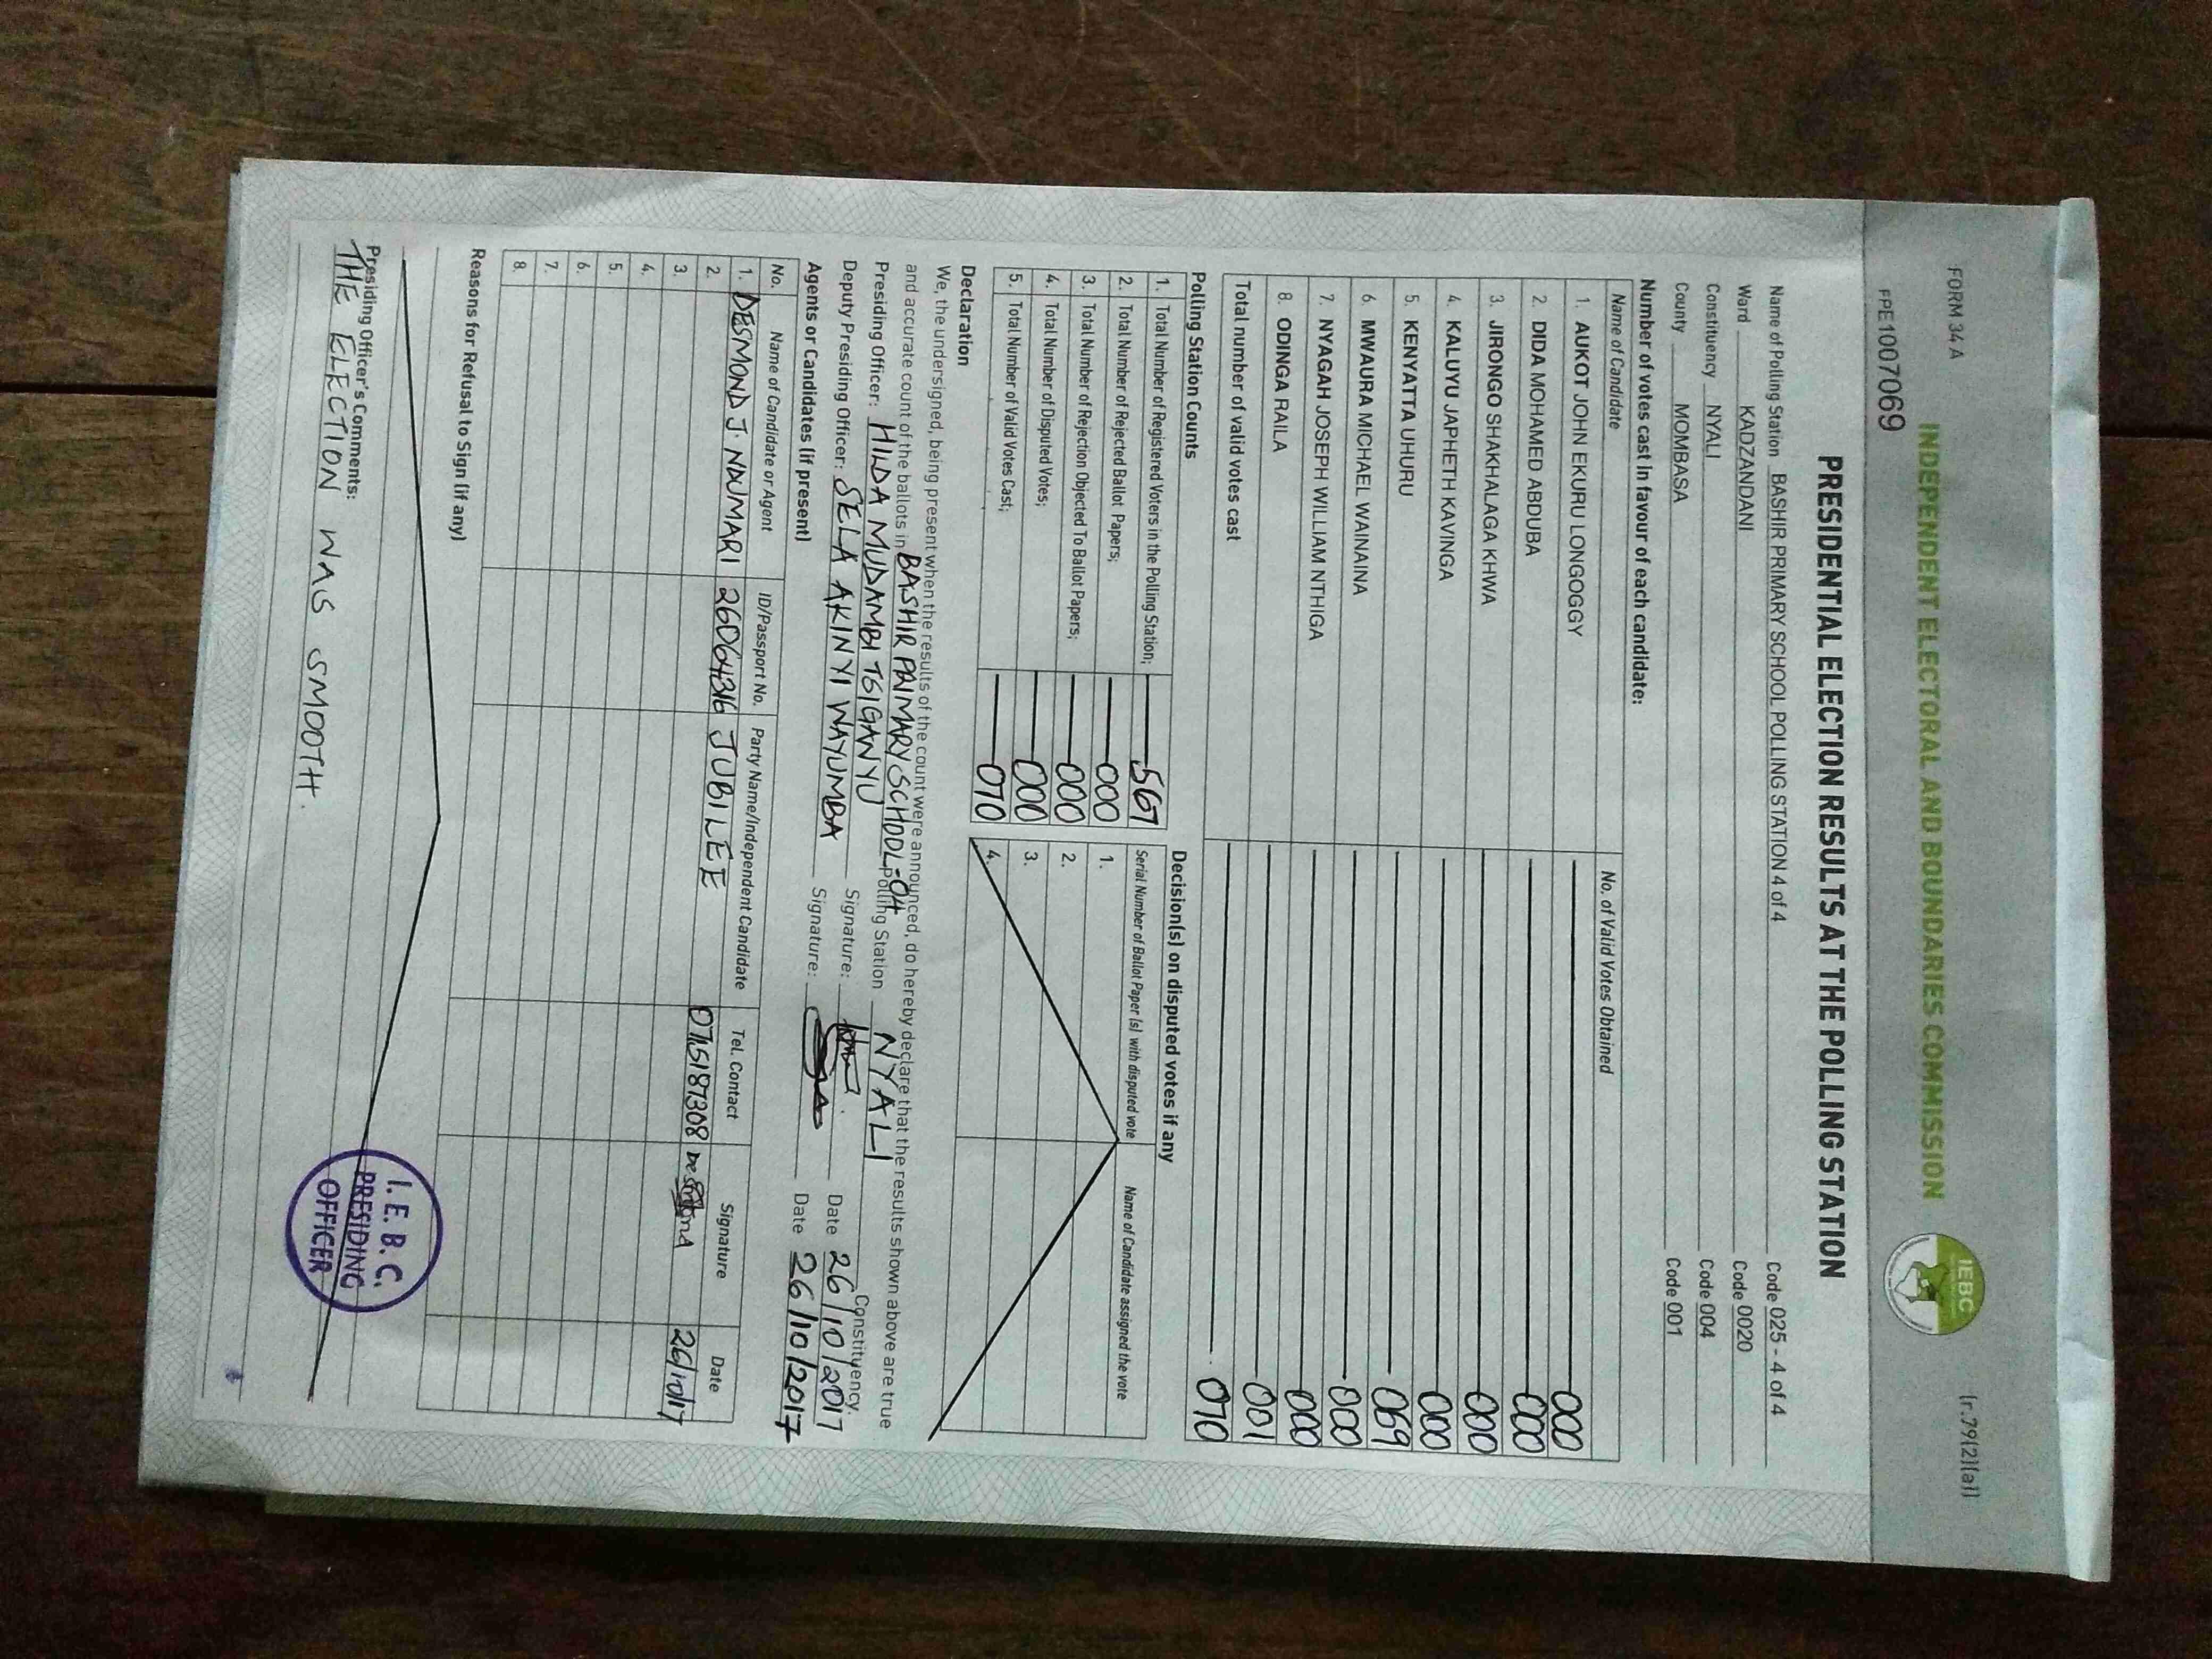 FORM 34 A
(r.79(2)(a))
INDEPENDENT ELECTORAL AND BOUNDARIES COMMISSION
IEBC
FPE1007069
PRESIDENTIAL ELECTION RESULTS AT THE POLLING STATION
Name of Polling Station BASHIR PRIMARY SCHOOL POLLING STATION 4 of 4 Code 025 - 4 of 4
Ward KADZANDANI Code 0020
Constituency NYALI Code 004
County MOMBASA Code 001
Number of votes cast in favour of each candidate:
Name of Candidate No. of Valid Votes Obtained
1. AUKOT JOHN EKURU LONGOGGY 000
2. DIDA MOHAMED ABDUBA 000
3. JIRONGO SHAKHALAGA KHWA 000
4. KALUYU JAPHETH KAVINGA 000
5. KENYATTA UHURU 069
6. MWAURA MICHAEL WAINAINA 000
7. NYAGAH JOSEPH WILLIAM NTHIGA 000
8. ODINGA RAILA 001
Total number of valid votes cast 070
Polling Station Counts
1. Total Number of Registered Voters in the Polling Station; 567
2. Total Number of Rejected Ballot Papers; 000
3. Total Number of Rejection Objected To Ballot Papers; 000
4. Total Number of Disputed Votes; 000
5. Total Number of Valid Votes Cast; 070
Decision(s) on disputed votes if any
Serial Number of Ballot Paper (s) with disputed vote Name of Candidate assigned the vote
1.
2.
3.
4.
Declaration
We, the undersigned, being present when the results of the count were announced, do hereby declare that the results shown above are true
and accurate count of the ballots in BASHIR PRIMARY SCHOOL-04 Polling Station NYALI Constituency.
Presiding Officer: HILDA MUDAMBI TSIGANYU Signature: Date 26/10/2017
Deputy Presiding Officer: SELA AKINYI WAYUMBA Signature: Date 26/10/2017
Agents or Candidates (if present)
No. Name of Candidate or Agent ID/Passport No. Party Name/Independent Candidate Tel. Contact Signature Date
1. DESMOND J. NDUMARI JUBILEE 0715187308 26/10/17
2.
3.
4.
5.
6.
7.
8.
Reasons for Refusal to Sign (if any)
Presiding Officer's Comments:
THE ELECTION WAS SMOOTH.
I.E.B.C.
PRESIDING
OFFICER